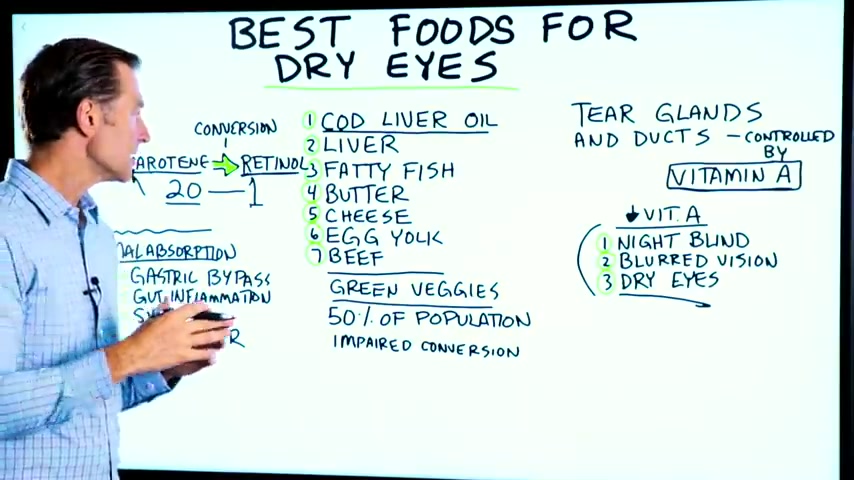 BEST FOODS FOR
DRY EYES
CONVERSION
RETINOL
20 — 1
GASTRIC BYPASS
GUT INFLAMMATION
1 COD LIVER OIL
2 LIVER
3 FATTY FISH
4 BUTTER
5 CHEESE
6 EGG YOLK
7 BEEF
GREEN VEGGIES
50% OF POPULATION
IMPAIRED CONVERSION
TEAR GLANDS
AND DUCTS – CONTROLLED
BY
VITAMIN A
↓ VIT. A
1 NIGHT BLIND
2 BLURRED VISION
3 DRY EYES